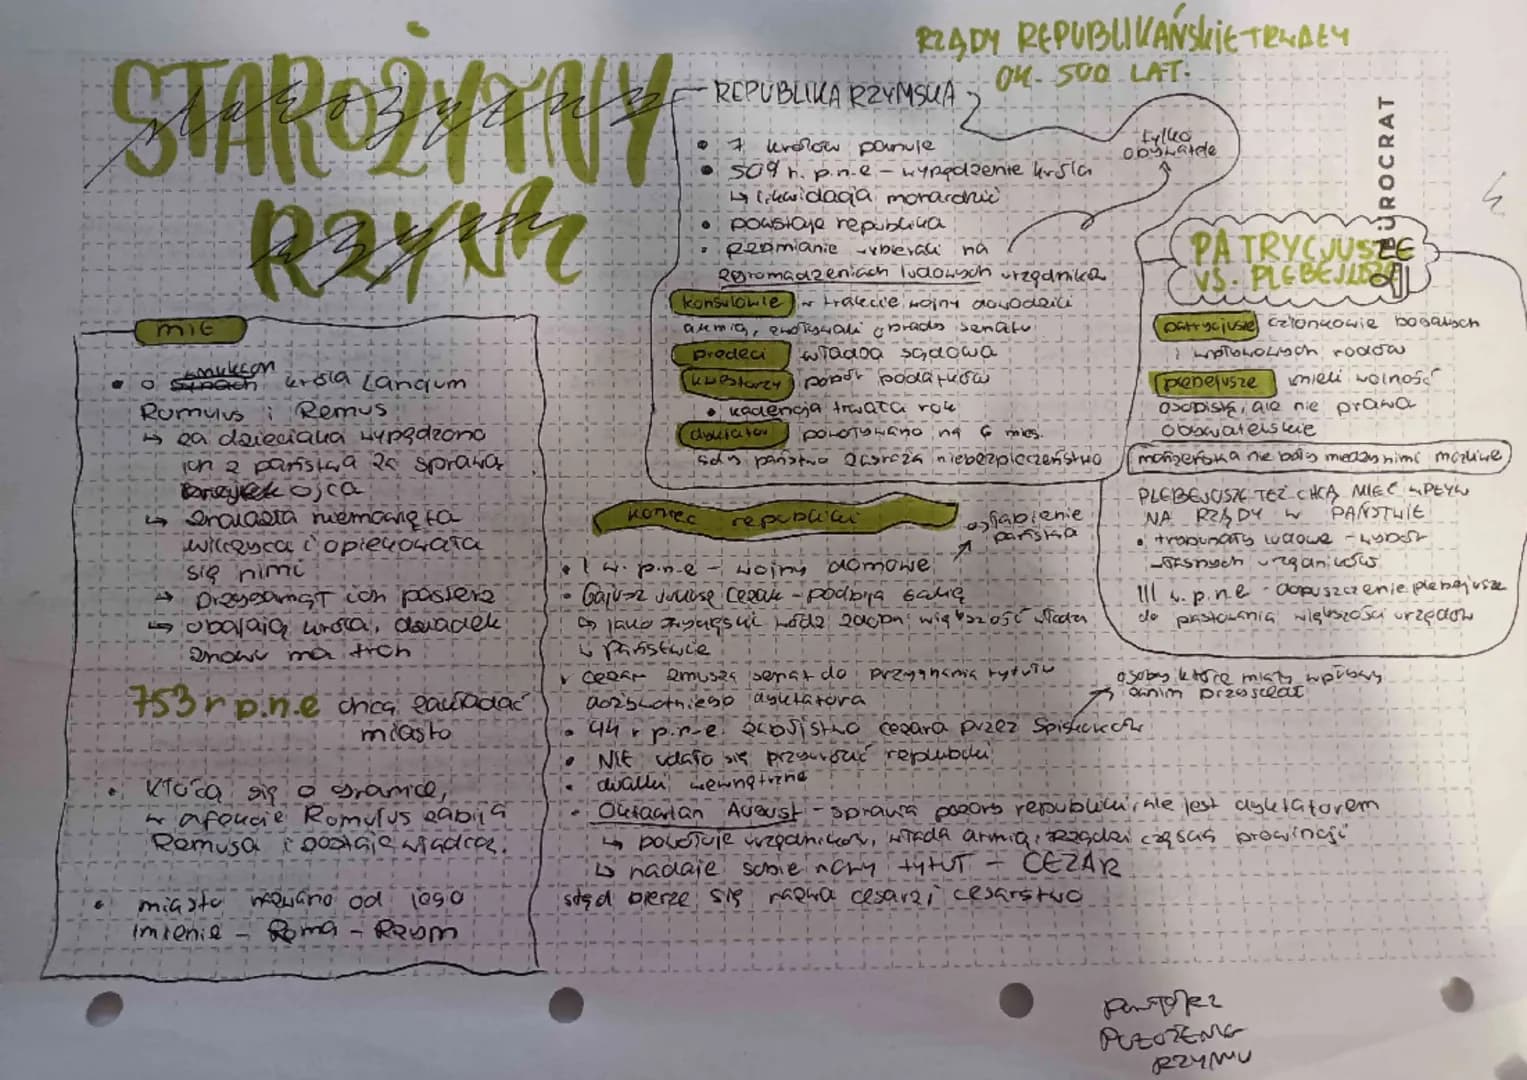 STAROŻYTNY
RZYM
starożytny
rzym
MIT
o wnukach króla Lancjum
Romulus i Remus
↳ za dzieciaka wypędzono
ich z państwa za sprawą
ojca
↳ znalazła niemowlęta
wilczyca i opiekowała
się nimi
→ przygarnął ich pasterz
↳ obalają króla, dziadek
znowu ma tron
753 r p.n.e chcą zakładać
miasto
• kłócą się o granice,
w afekcie Romulus zabija
Remusa i zostaje władcą.
• miasto nazwano od jego
imienia - Roma - Rzym
RZĄDY REPUBLIKAŃSKIE TRWAŁY
OK. 500 LAT.
REPUBLIKA RZYMSKA
• 7 królów panuje
• 509 r. p.n.e - wypędzenie króla
↳ likwidacja monarchii
• powstaje republika
• Rzymianie wybierali na
zgromadzeniach ludowych urzędników
tylko
obywatele
konsulowie w trakcie wojny dowodzili
armią, zwoływali obrady senatu
pretorzy władza sądowa
kwestorzy pobór podatków
• kadencja trwała rok
dyktator powoływano na 6 mies.
gdy państwu zagraża niebezpieczeństwo
BÜROCRAT
PATRYCJUSZE
VS. PLEBEJUSZE
patrycjusze członkowie bogatych
i wpływowych rodów
plebejusze mieli wolność
osobistą, ale nie prawa
obywatelskie
małżeństwa nie były między nimi możliwe
PLEBEJUSZE TEŻ CHCĄ MIEĆ WPŁYW
NA RZĄDY W PAŃSTWIE
• trybunaty ludowe - wybór
własnych urzędników
III w. p.n.e - dopuszczenie plebejusze
do pastowania większości urzędów
koniec republiki
osłabienie
państwa
• I w. p.n.e - wojny domowe
• Gajusz Juliusz Cezar - podbija Galię
↳ jako zwycięski wódz zdobył większość władzy
w państwie
• cezar zmusza senat do przyznania tytułu
dożywotniego dyktatora
osoby które miały wpływy
zanim przyszedł
• 44 r p.n.e. zabójstwo cezara przez spiskowców
• NIE udało się przywrócić republiki
• walki wewnętrzne
• Oktawian August - sprawia pozory republiki, ale jest dyktatorem
↳ powołuje urzędników, włada armią, zarządza częścią prowincji
↳ nadaje sobie nowy tytuł - CEZAR
stąd bierze się nazwa cesarz i cesarstwo
POŁOŻENIE
RZYMU